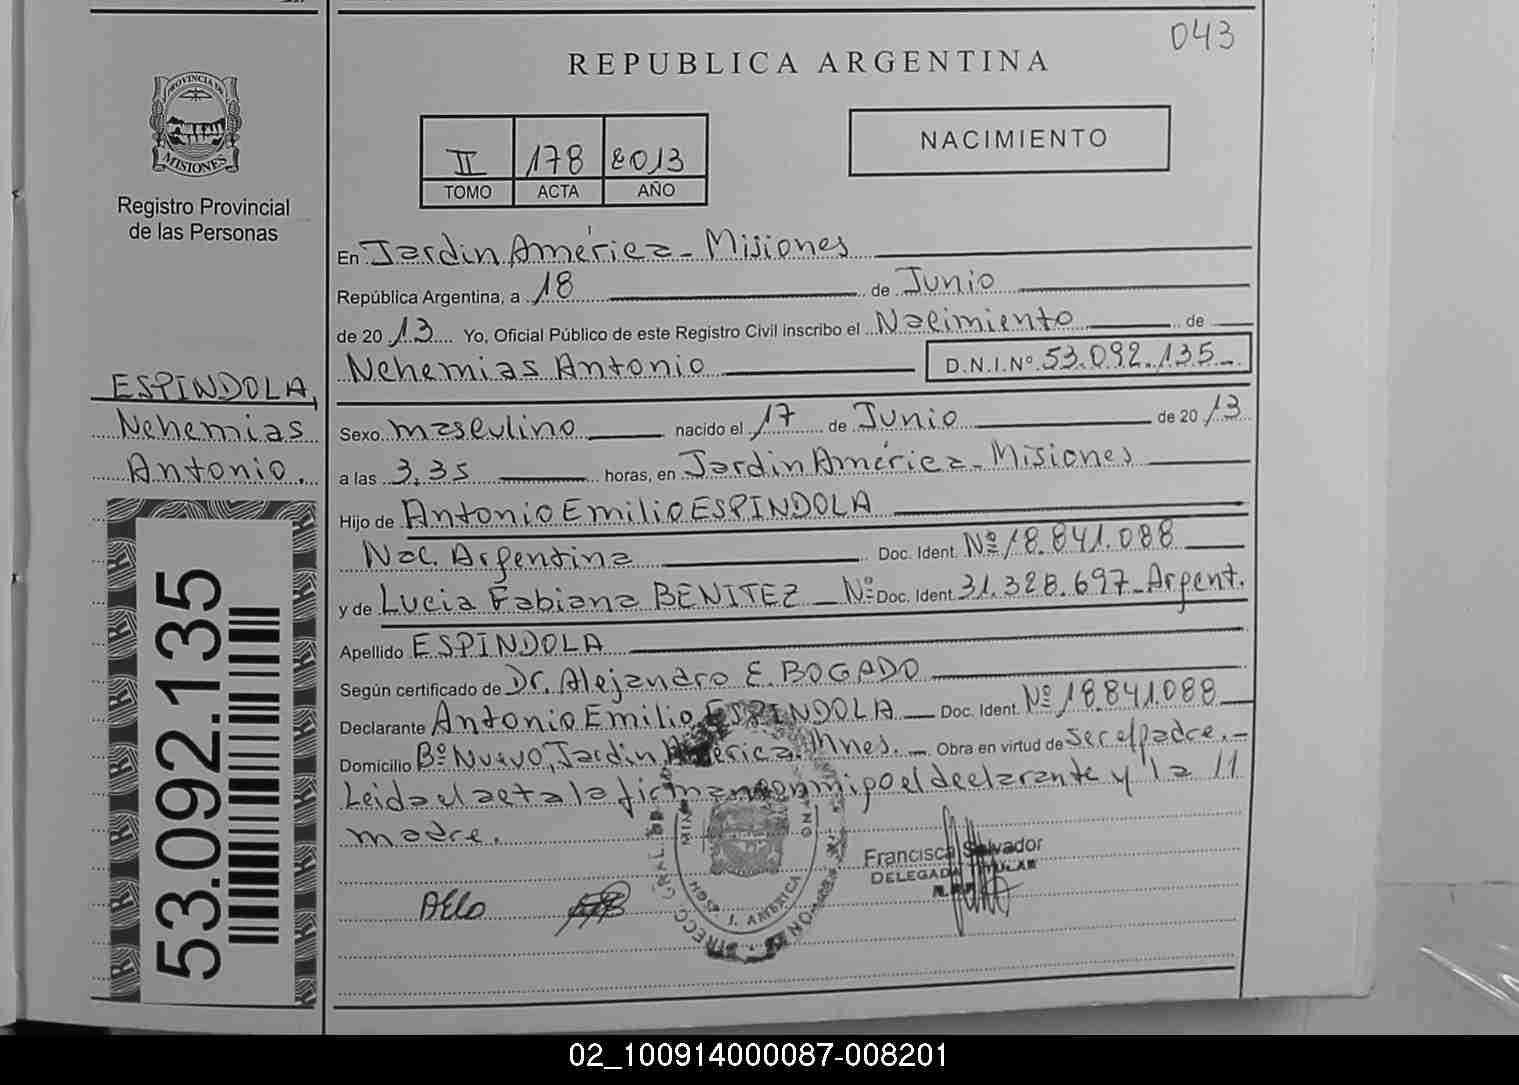 043
REPUBLICA ARGENTINA
PROVINCIA DE
MISIONES
Registro Provincial
de las Personas
II 178 2013
TOMO ACTA AÑO
NACIMIENTO
En Jardin América - Misiones
República Argentina, a 18 de Junio
de 20 13 Yo, Oficial Público de este Registro Civil inscribo el Nacimiento de
Nehemias Antonio D.N.I.Nº 53.092.135
ESPINDOLA,
Nehemias
Antonio.
Sexo masculino nacido el 17 de Junio de 20 13
a las 3,35 horas, en Jardin América - Misiones
Hijo de Antonio Emilio ESPINDOLA
Nac. Argentina Doc. Ident. Nº 18.841.088
y de Lucia Fabiana BENITEZ Nº Doc. Ident. 31.328.697 - Argent.
Apellido ESPINDOLA
Según certificado de Dr. Alejandro E. BOGADO
Declarante Antonio Emilio ESPINDOLA Doc. Ident. Nº 18.841.088
Domicilio Bº Nuevo, Jardin América. Mnes. Obra en virtud de ser el padre. -
Leida el acta la firman conmigo el declarante y la
madre.
53.092.135
J. AMERICA
Francisca Salvador
DELEGADA TITULAR
02_100914000087-008201